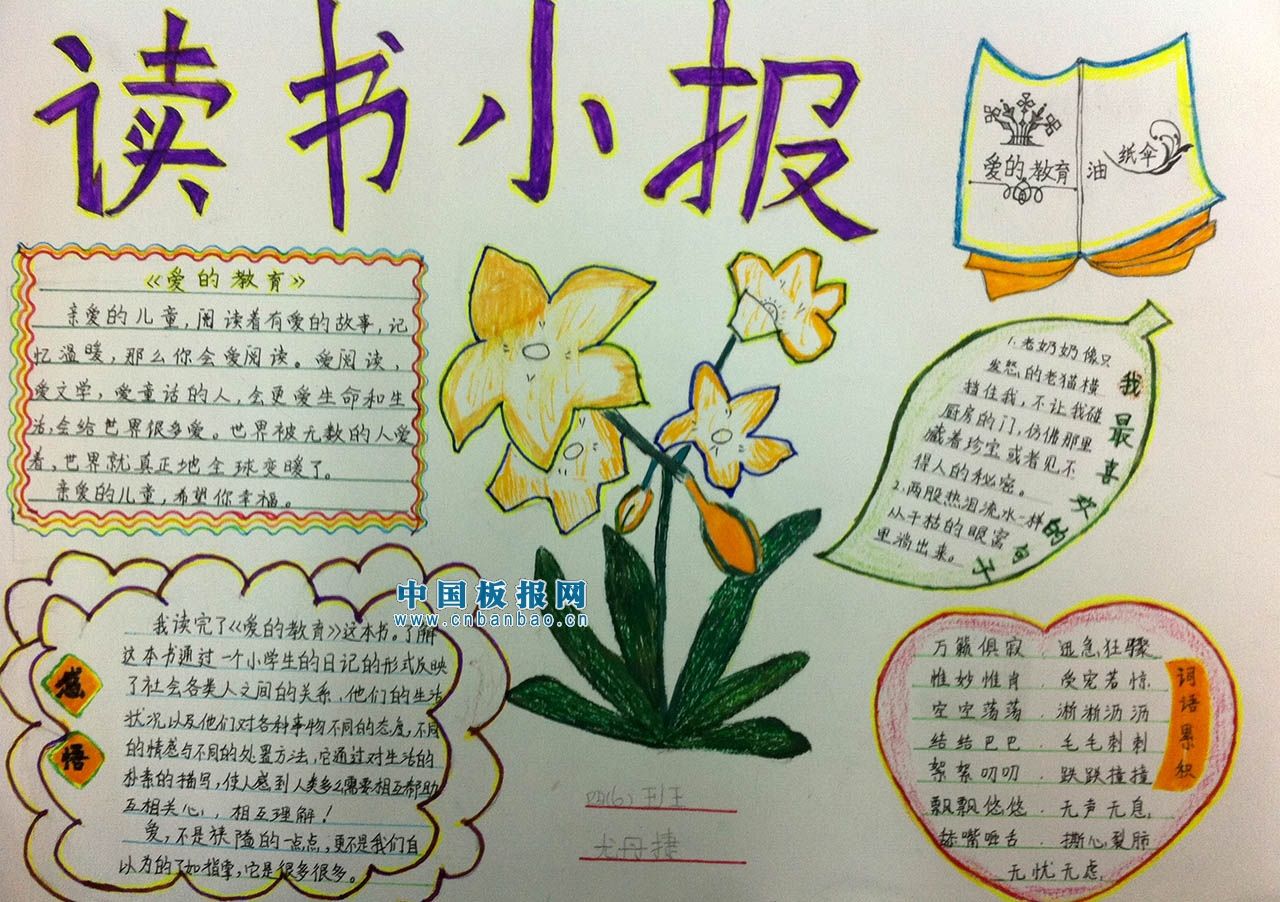 读书小报
爱的教育
油纸伞
《爱的教育》
亲爱的儿童,阅读着有爱的故事,记
忆温暖,那么你会爱阅读。爱阅读,
爱文学,爱童话的人,会更爱生命和生
活,会给世界很多爱。世界被无数的人爱
着,世界就真正地全球变暖了。
亲爱的儿童,希望你幸福。
我最喜欢的句子
1.老奶奶像只
发怒的老猫横
挡住我,不让我碰
厨房的门,仿佛那里
藏着珍宝或者见不
得人的秘密。
2.两股热泪流水一样
从干枯的眼窝
里淌出来。
中国板报网
www.cnbanbao.cn
感悟
我读完了《爱的教育》这本书。了解
这本书通过一个小学生的日记的形式反映
了社会各类人之间的关系.他们的生活
状况以及他们对各种事物不同的态度,不同
的情感与不同的处置方法,它通过对生活的
朴素的描写,使人感到人类多么需要相互帮助
互相关心,相互理解!
爱,不是狭隘的一点点,更不是我们自
以为的了如指掌,它是很多很多。
词语累积
万籁俱寂.迅急狂骤
惟妙惟肖.受宠若惊
空空荡荡.淅淅沥沥
结结巴巴.毛毛刺刺
絮絮叨叨.跌跌撞撞
飘飘悠悠.无声无息
舔嘴咂舌.撕心裂肺
无忧无虑.
四(6)班
尤丹捷